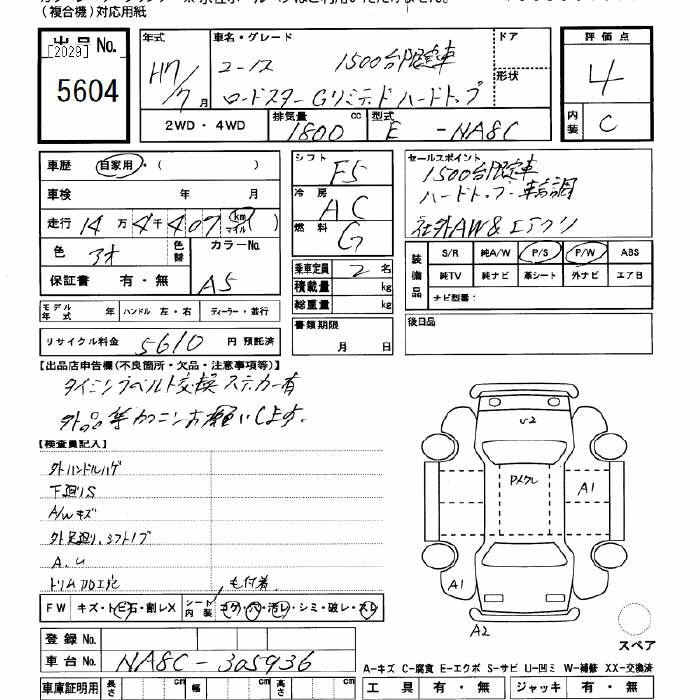 (複合機)対応用紙
出品No.
[2029]
5604
年式
H7/7月
車名・グレード
ユーノス 1500台限定車
ロードスター Gリミテッド ハードトップ
ドア
形状
2WD・4WD
排気量 1800 cc
型式 E - NA8C
評価点
4
内装 C
車歴 自家用・( )
車検 年 月
走行 14万4千407 km マイル
色 アオ 色替
カラーNo. A5
保証書 有・無
シフト F5
冷房 AC
燃料 G
乗車定員 2名
積載量 kg
総重量 kg
セールスポイント
1500台限定車
ハードトップ・車高調
社外AW&エアクリ
装備品
S/R 純A/W P/S P/W ABS
純TV 純ナビ 革シート 外ナビ エアB
ナビ型番:
モデル年式 年 ハンドル 左・右 ディーラー・並行
リサイクル料金 5610 円 預託済
書類期限 月 日
後日品
【出品店申告欄(不良箇所・欠品・注意事項等)】
タイミングベルト交換ステッカー有
外品等カクニンお願いします。
【検査員記入】
外ハンドルハゲ
下廻りS
A/Wキズ
外足廻り、シフトノブ
A.U
トリム加工穴
も付着
FW キズ・トビ石・割レX
シート内装 コゲ・穴・汚レ・シミ・破レ・スレ
登録No.
車台No. NA8C-305936
車庫証明用 長さ cm 幅 cm 高さ cm
U2
Pメクレ
A1
A1
A2
スペア
A-キズ C-腐食 E-エクボ S-サビ U-凹ミ W-補修 XX-交換済
工具 有・無 ジャッキ 有・無